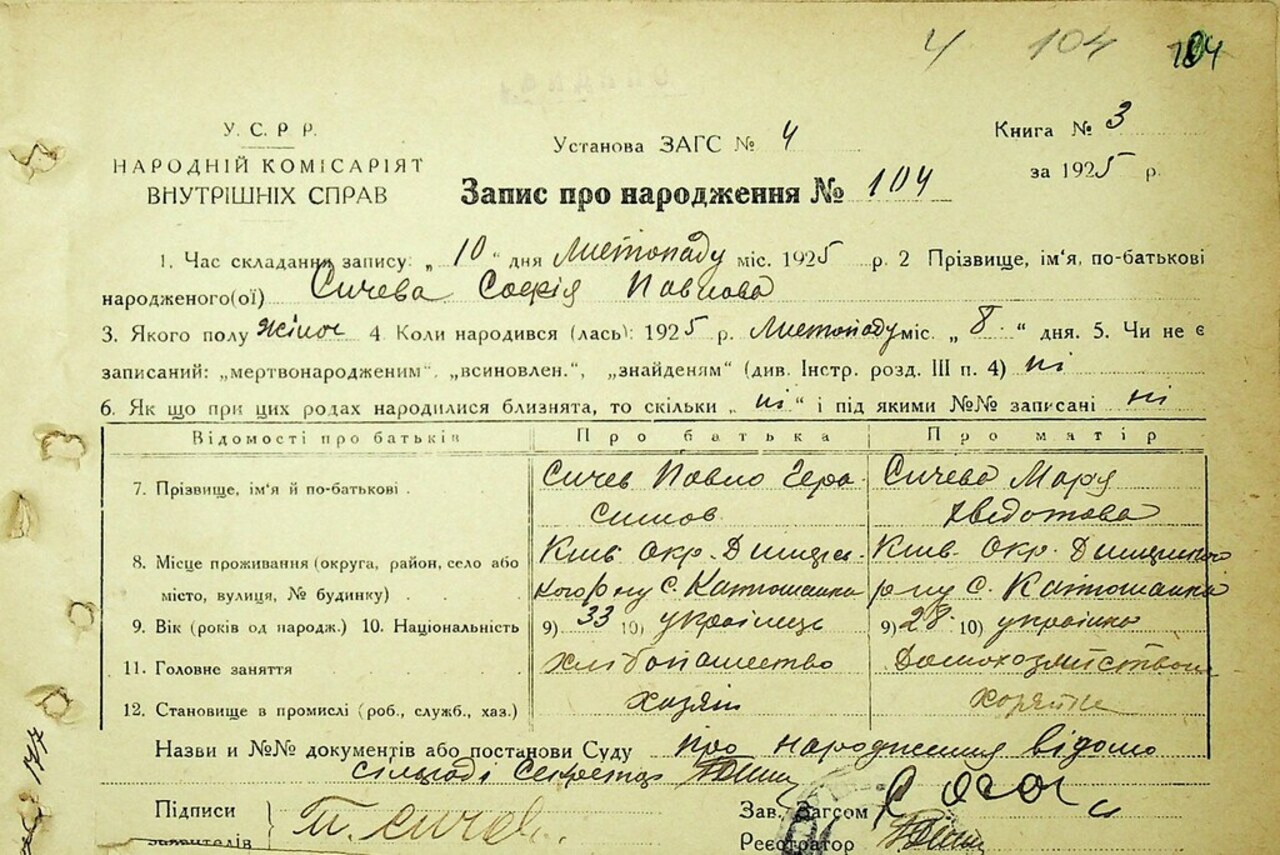 4 104 104
У. С. Р. Р.
НАРОДНІЙ КОМІСАРІЯТ
ВНУТРІШНІХ СПРАВ
Установа ЗАГС № 4
Книга № 3
за 1925 р.
Запис про народження № 104
1. Час складання запису: „ 10 " дня Листопаду міс. 1925 р. 2 Прізвище, ім'я, по-батькові
народженого(ої) Сичева Софія Павлова
3. Якого полу жіноч 4. Коли народився (лась): 1925 р. Листопаду міс. „ 8. " дня. 5. Чи не є
записаний: „мертвонародженим", „всиновлен.", „знайденям" (див. Інстр. розд. III п. 4) ні
6. Як що при цих родах народилися близнята, то скільки „ ні " і під якими №№ записані ні
Відомості про батьків Про батька Про матір
7. Прізвище, ім'я й по-батькові Сичев Павло Гера- Сичева Мар'я
симов Хведотова
8. Місце проживання (округа, район, село або Київ. Окр. Димер- Київ. Окр. Димерського
місто, вулиця, № будинку) кого р-ну С. Катюжанка р-ну С. Катюжанка
9. Вік (років од народж.) 10. Національність 9) 33 10) українець 9) 28 10) українка
11. Головне заняття хлібопашество
12. Становище в промислі (роб., служб., хаз.) хазяїн
Назви и №№ документів або постанови Суду про народження відомо
сільраді Секретар
Підписи
заявителів П. Сичев.
Зав. Загсом
Реєстратор
177